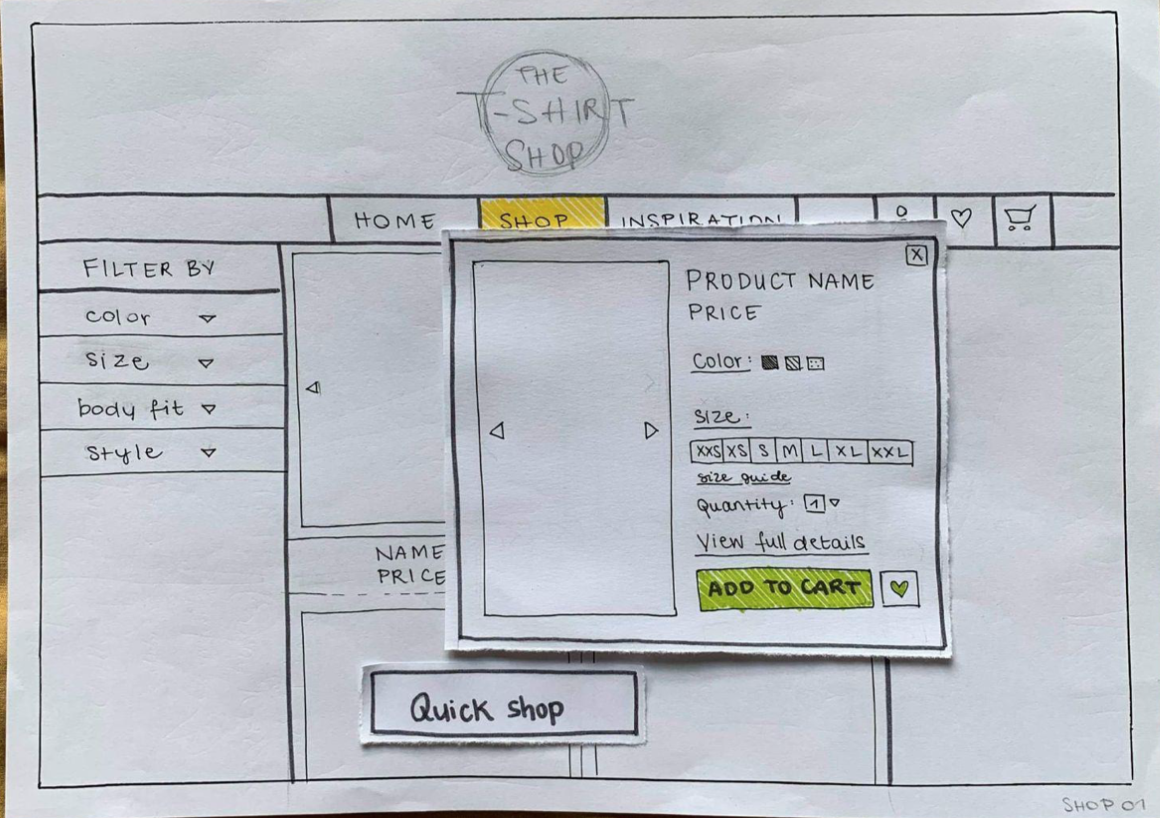 THE
T-SHIRT
SHOP
HOME SHOP INSPIRATION
FILTER BY
color
size
body fit
style
NAME
PRICE
X
PRODUCT NAME
PRICE
Color:
Size:
XXS XS S M L XL XXL
size guide
Quantity: 1
View full details
ADD TO CART
Quick shop
SHOP 01